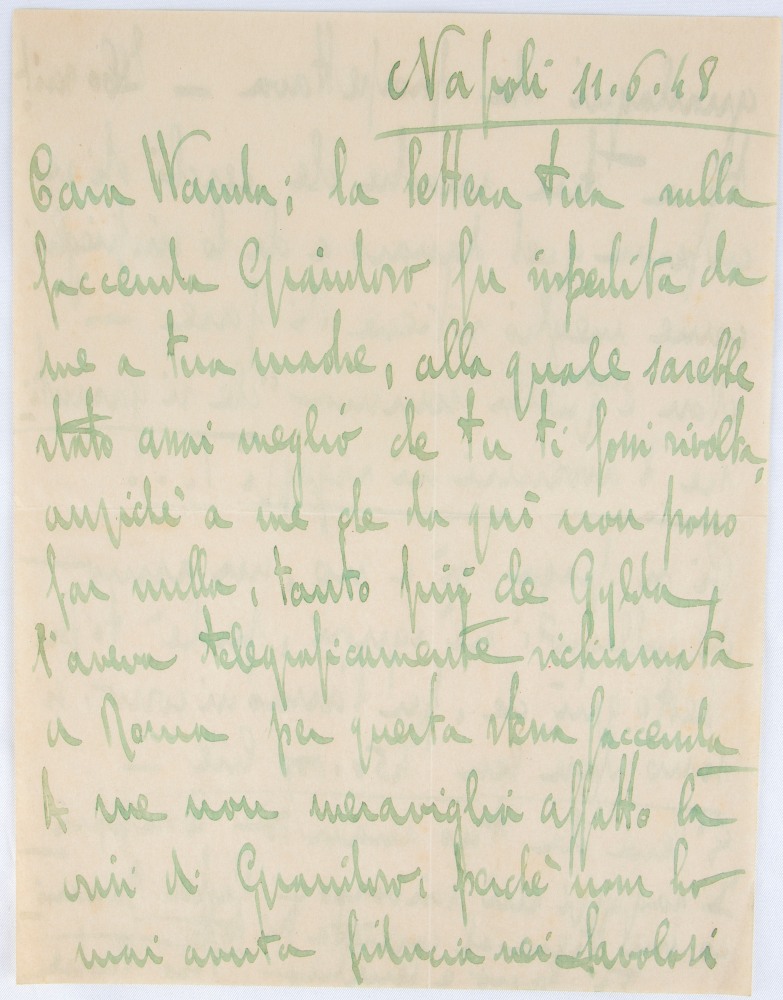 Napoli 11.6.48
Cara Wanda; la lettera tua sulla
faccenda Grandoso fu ispedita da
me a tua madre, alla quale sarebbe
stato assai meglio che tu ti fossi rivolta,
anzichè a me che da quì non posso
far nulla, tanto più che Gylda,
t'aveva telegraficamente richiamata
a Roma per questa stessa faccenda
A me non meraviglia affatto la
crisi di Grandoso, perchè non ho
mai avuta fiducia nei